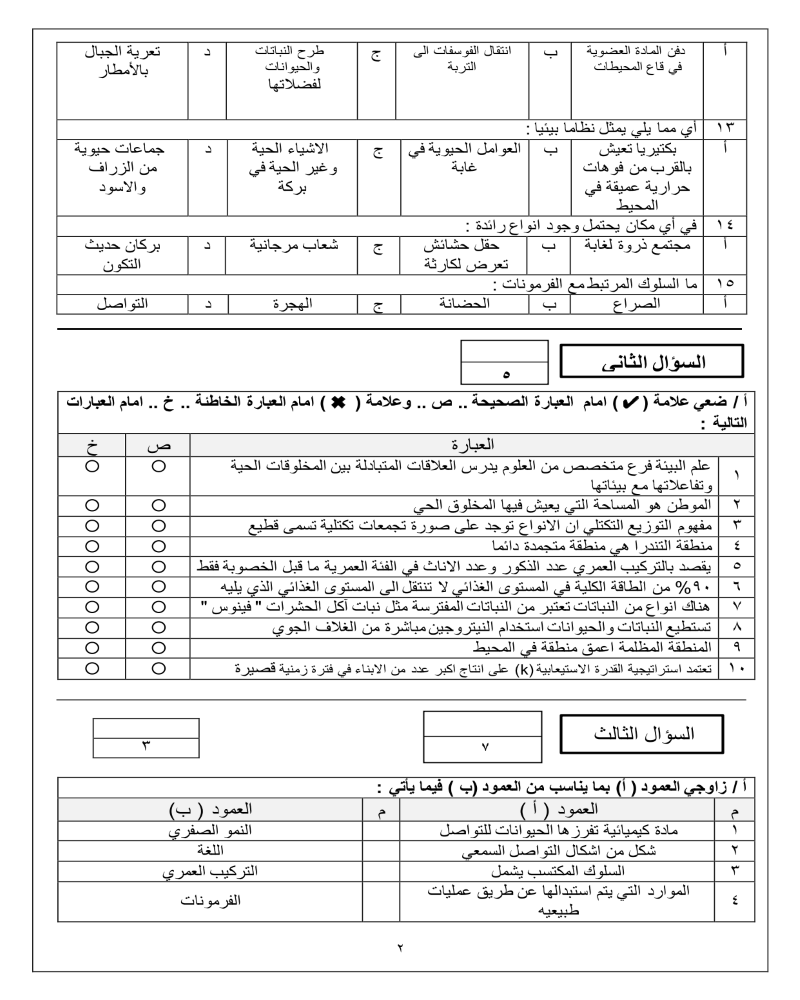 أ دفن المادة العضوية ب انتقال الفوسفات الى ج طرح النباتات د تعرية الجبال
في قاع المحيطات التربة والحيوانات بالأمطار
لفضلاتها
١٣ أي مما يلي يمثل نظاما بيئيا :
أ بكتيريا تعيش ب العوامل الحيوية في ج الاشياء الحية د جماعات حيوية
بالقرب من فوهات غابة وغير الحية في من الزراف
حرارية عميقة في بركة والاسود
المحيط
١٤ في أي مكان يحتمل وجود انواع رائدة :
أ مجتمع ذروة لغابة ب حقل حشائش ج شعاب مرجانية د بركان حديث
تعرض لكارثة التكون
١٥ ما السلوك المرتبط مع الفرمونات :
أ الصراع ب الحضانة ج الهجرة د التواصل
السؤال الثاني
٥
أ / ضعي علامة ( ✔ ) امام العبارة الصحيحة .. ص .. وعلامة ( ✖ ) امام العبارة الخاطئة .. خ .. امام العبارات
التالية :
العبارة ص خ
١ علم البيئة فرع متخصص من العلوم يدرس العلاقات المتبادلة بين المخلوقات الحية
وتفاعلاتها مع بيئاتها
٢ الموطن هو المساحة التي يعيش فيها المخلوق الحي
٣ مفهوم التوزيع التكتلي ان الانواع توجد على صورة تجمعات تكتلية تسمى قطيع
٤ منطقة التندرا هي منطقة متجمدة دائما
٥ يقصد بالتركيب العمري عدد الذكور وعدد الاناث في الفئة العمرية ما قبل الخصوبة فقط
٦ ٩٠% من الطاقة الكلية في المستوى الغذائي لا تنتقل الى المستوى الغذائي الذي يليه
٧ هناك انواع من النباتات تعتبر من النباتات المفترسة مثل نبات آكل الحشرات " فينوس "
٨ تستطيع النباتات والحيوانات استخدام النيتروجين مباشرة من الغلاف الجوي
٩ المنطقة المظلمة اعمق منطقة في المحيط
١٠ تعتمد استراتيجية القدرة الاستيعابية (k) على انتاج اكبر عدد من الابناء في فترة زمنية قصيرة
السؤال الثالث
٧
٣
أ / زاوجي العمود ( أ) بما يناسب من العمود (ب ) فيما يأتي :
م العمود ( أ ) م العمود ( ب)
١ مادة كيميائية تفرزها الحيوانات للتواصل النمو الصفري
٢ شكل من اشكال التواصل السمعي اللغة
٣ السلوك المكتسب يشمل التركيب العمري
٤ الموارد التي يتم استبدالها عن طريق عمليات الفرمونات
طبيعيه
٢